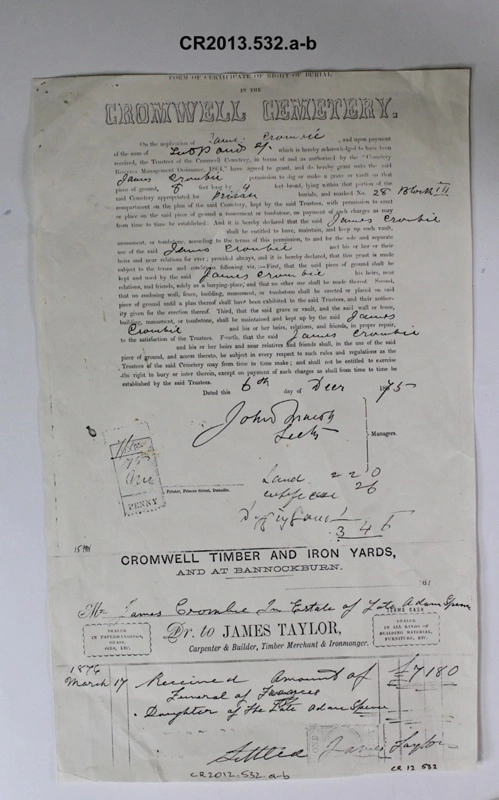 CR2013.532.a-b
FORM OF CERTIFICATE OF RIGHT OF BURIAL
IN THE
CROMWELL CEMETERY.
On the application of James Crombie, and upon payment
of the sum of Two pounds 2/- which is hereby acknowledged to have been
received, the Trustees of the Cromwell Cemetery, in terms of and as authorised by the "Cemetery
Reserves Management Ordinance, 1864," have agreed to grant, and do hereby grant unto the said
James Crombie permission to dig or make a grave or vault on that
piece of ground, 8 feet long by 4 feet broad, lying within that portion of the
said Cemetery appropriated to burials, and marked No. 28 Block III
compartment on the plan of the said Cemetery, kept by the said Trustees, with permission to erect
or place on the said piece of ground a monument or tombstone, on payment of such charges as may
from time to time be established: And it is hereby declared that the said James Crombie
shall be entitled to have, maintain, and keep up such vault,
monument, or tombstone, according to the terms of this permission, to and for the sole and separate
use of the said James Crombie and his or her or their
heirs and near relations for ever; provided always, and it is hereby declared, that this grant is made
subject to the terms and conditions following viz. :—First, that the said piece of ground shall be
kept and used by the said James Crombie his heirs, near
relations, and friends, solely as a burying-place; and that no other use shall be made thereof. Second,
that no enclosing wall, fence, building, monument, or tombstone shall be erected or placed on said
piece of ground until a plan thereof shall have been exhibited to the said Trustees, and their author-
ity given for the erection thereof. Third, that the said grave or vault, and the said wall or fence,
building, monument, or tombstone, shall be maintained and kept up by the said James
Crombie and his or her heirs, relations, and friends, in proper repair,
to the satisfaction of the Trustees. Fourth, that the said James Crombie
and his or her heirs and near relatives and friends shall, in the use of the said
piece of ground, and access thereto, be subject in every respect to such rules and regulations as the
Trustees of the said Cemetery may from time to time make; and shall not be entitled to exercise
the right to bury or inter therein, except on payment of such charges as shall from time to time be
established by the said Trustees.
Dated this 6th day of Decr 1875
John
Secty
Managers.
75
One
PENNY
Printer, Princes Street, Dunedin.
Land 2 2 0
certificate 2 6
Digging Grave 1
3 4 6
CROMWELL TIMBER AND IRON YARDS,
AND AT BANNOCKBURN.
187
Mr James Crombie In Estate of Late Adam Spence
TERMS CASH
DEALER
IN PAPERHANGINGS,
GLASS,
OILS, ETC.
Dr. to JAMES TAYLOR,
Carpenter & Builder, Timber Merchant & Ironmonger.
DEALER
IN ALL KINDS OF
BUILDING MATERIAL,
FURNITURE, ETC.
1876
March 17 Received Amount of £7 18 0
Funeral of Frances
Daughter of the Late Adam Spence
Settled James Taylor
CR2012.532 a-b
CR 12 532